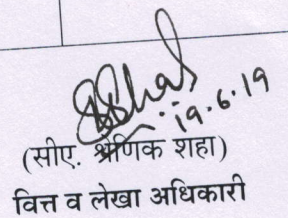 19.6.19
(सीए. श्रेणिक शहा)
वित्त व लेखा अधिकारी